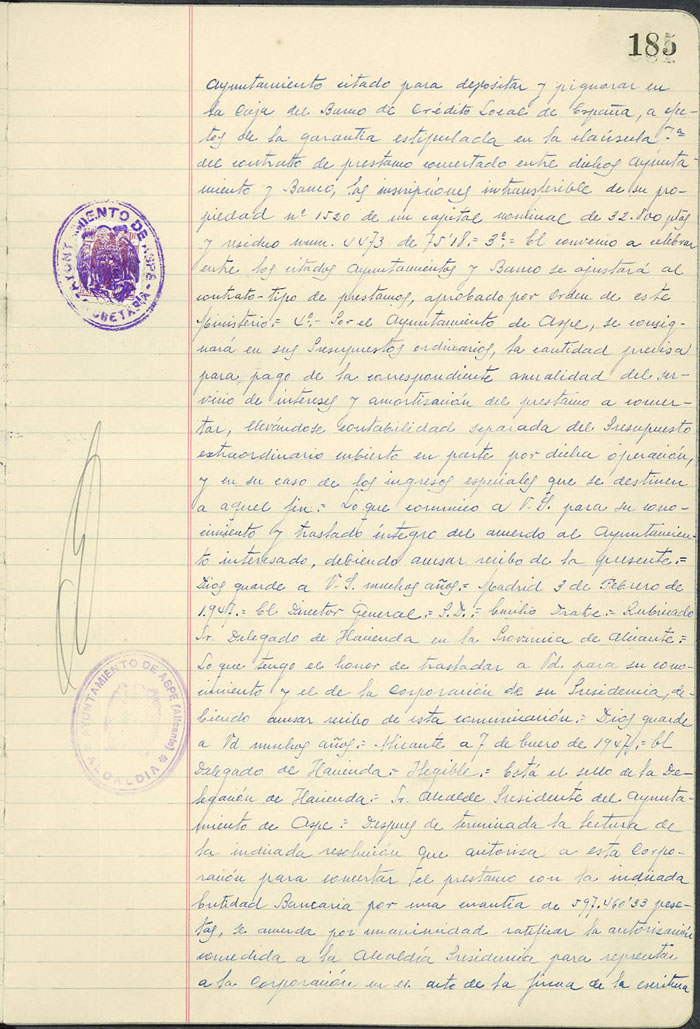 185
Ayuntamiento citado para depositar y pignorar en
la Caja del Banco de Crédito Local de España, a efec-
tos de la garantía estipulada en la cláusula 7ª
del contrato de prestamo concertado entre dichos Ayunta-
miento y Banco, las inscripciones intransferible de su pro-
piedad nº 1520 de un capital nominal de 32.800 ptas
y residuo num. 4473 de 75'18.= 3º.= El convenio a celebrar
entre los citados Ayuntamientos y Banco se ajustará al
contrato-tipo de prestamos, aprobado por Orden de este
Ministerio.= 4º.- Por el Ayuntamiento de Aspe, se consig-
nará en sus Presupuestos ordinarios, la cantidad precisa
para pago de la correspondiente anualidad del ser-
vicio de intereses y amortización del prestamo a concer-
tar, llevándose contabilidad separada del Presupuesto
extraordinario cubierto en parte por dicha operación,
y en su caso de los ingresos especiales que se destinen
a aquel fin.= Lo que comunico a V.S. para su cono-
cimiento y traslado íntegro del acuerdo al Ayuntamien-
to interesado, debiendo acusar recibo de la presente.=
Dios guarde a V.S. muchos años.= Madrid 3 de Febrero de
1.947.= El Director General.= P.D.= Emilio = Rubricado
Sr. Delegado de Hacienda en la Provincia de Alicante=
Lo que tengo el honor de trasladar a Vd. para su cono-
cimiento y el de la Corporación de su Presidencia, de-
biendo acusar recibo de esta comunicación.= Dios guarde
a Vd muchos años.= Alicante a 7 de Enero de 1947.= El
Delegado de Hacienda.= Ilegible.= Está el sello de la De-
legación de Hacienda.= Sr. Alcalde Presidente del Ayunta-
miento de Aspe.= Despues de terminada la lectura de
la indicada resolución que autoriza a esta Corpo-
ración para concertar el prestamo con la indicada
Entidad Bancaria por una cuantia de 597.460'33 pese-
tas, se acuerda por unanimidad ratificar la autorización
concedida a la Alcaldía Presidencia para representar
a la Corporación en el acto de la firma de la escritura
AYUNTAMIENTO DE ASPE
SECRETARIA
AYUNTAMIENTO DE ASPE (Alicante)
ALCALDIA